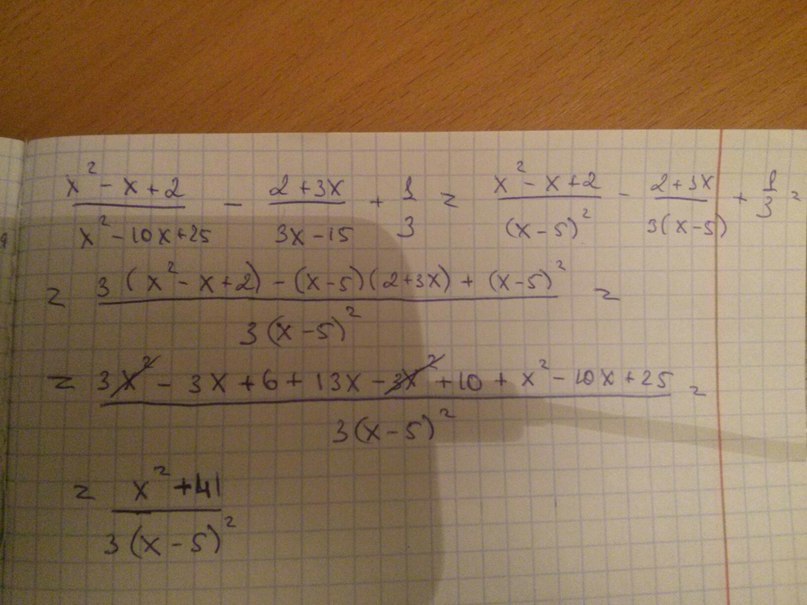 (x² - x + 2)/(x² - 10x + 25) - (2 + 3x)/(3x - 15) + 1/3 = (x² - x + 2)/(x - 5)² - (2 + 3x)/(3(x - 5)) + 1/3 =
= (3(x² - x + 2) - (x - 5)(2 + 3x) + (x - 5)²)/(3(x - 5)²) =
= (3x² - 3x + 6 + 13x - 3x² + 10 + x² - 10x + 25)/(3(x - 5)²) =
= (x² + 41)/(3(x - 5)²)